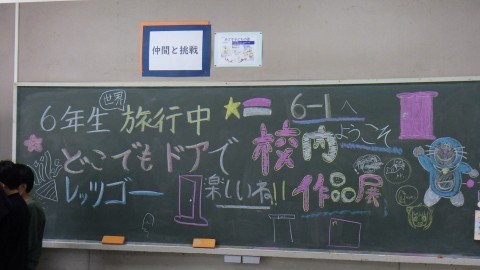 仲間と挑戦
6年生 世界 旅行中
どこでもドアで
レッツゴー 楽しいね!!
6-1へ
ようこそ
校内
作品展